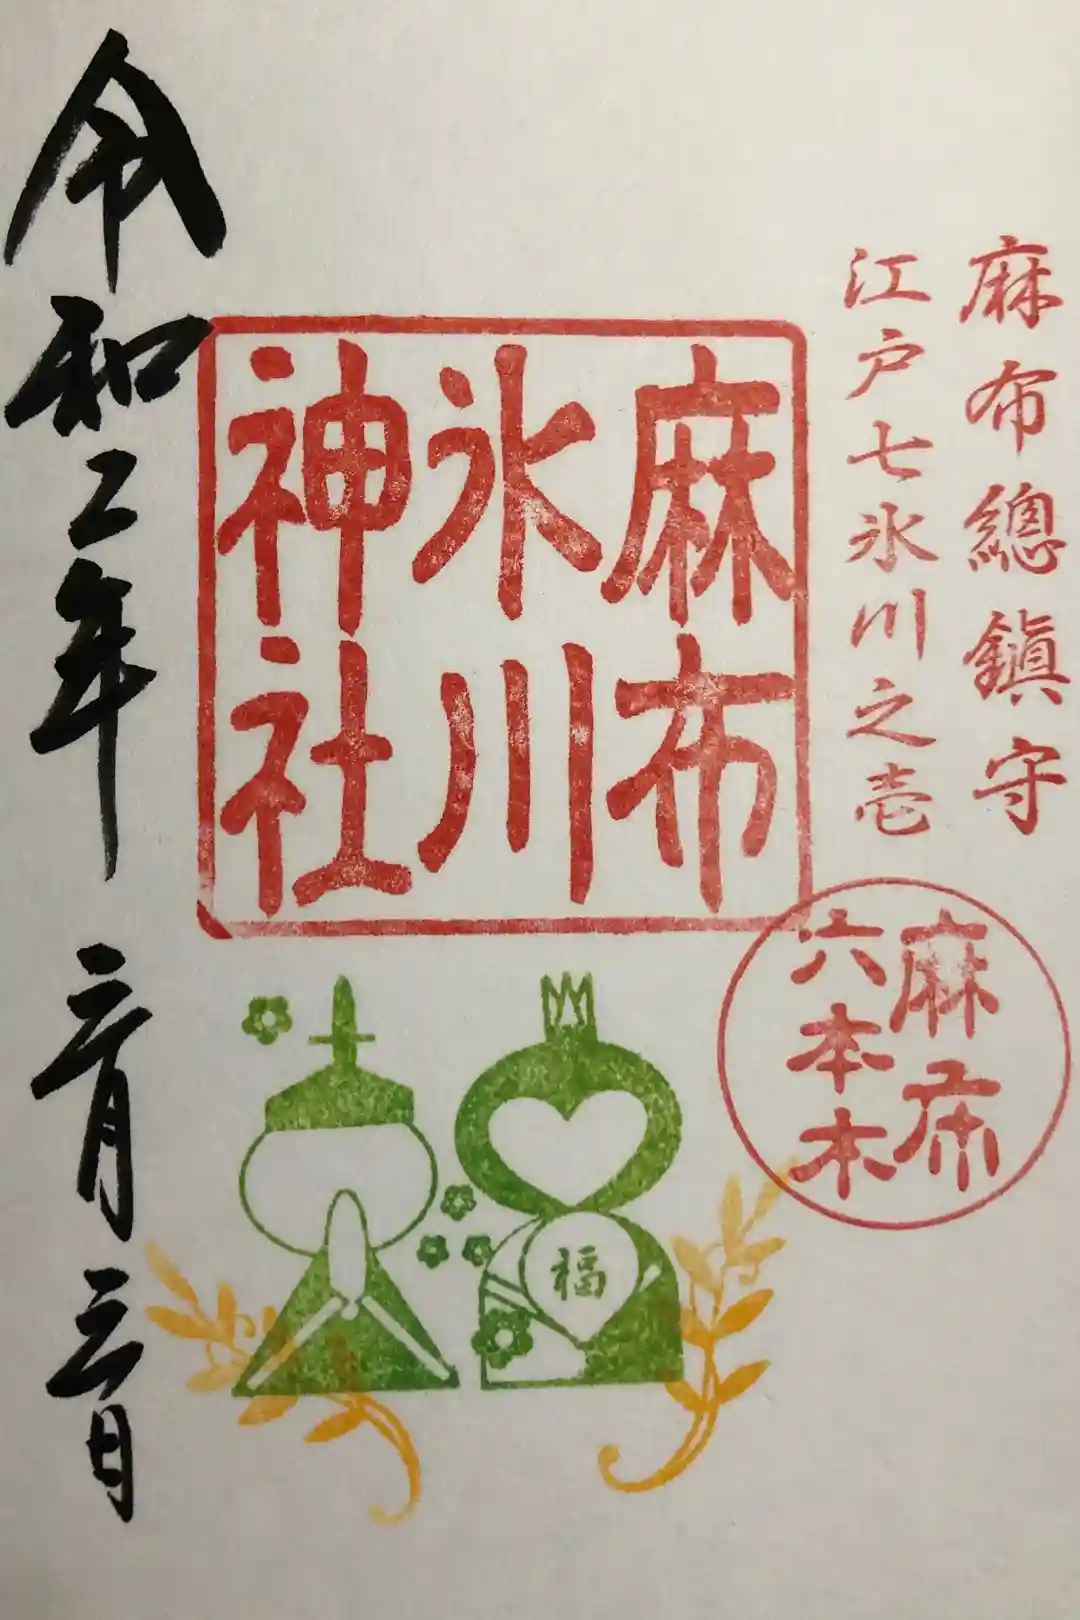 麻布總鎮守
江戸七氷川之壱
麻布
氷川
神社
麻布
六本木
福
令和二年 三月 三日